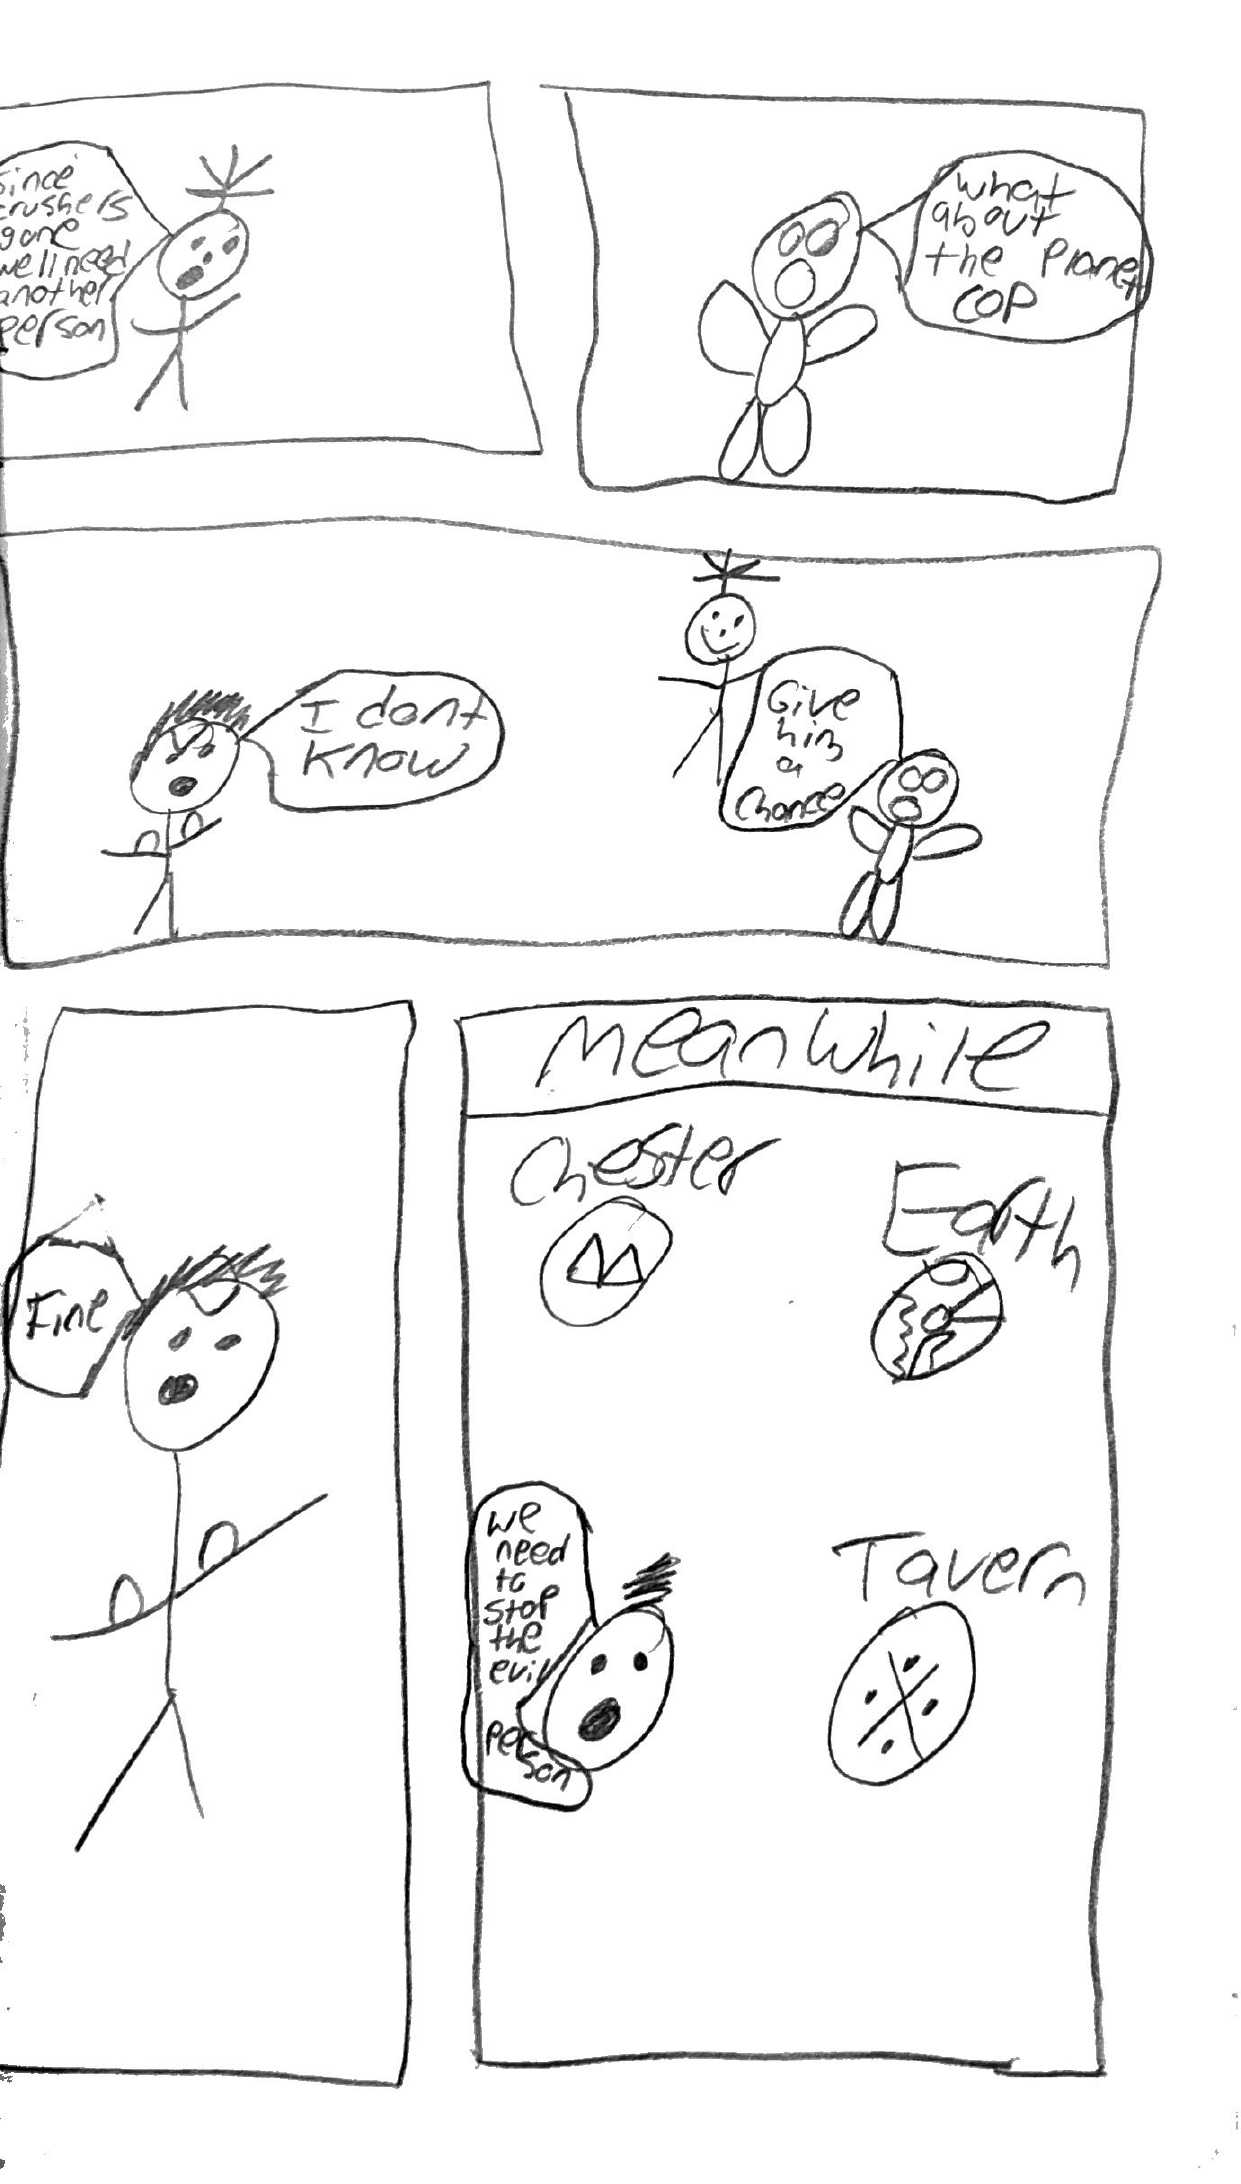 Since
crushers
gone
we'll need
another
person
what
about
the Planet
COP
I dont
know
Give
him
a
chance
Fine
Meanwhile
Chester
Earth
we
need
to
stop
the
evil
per
son
Tavern